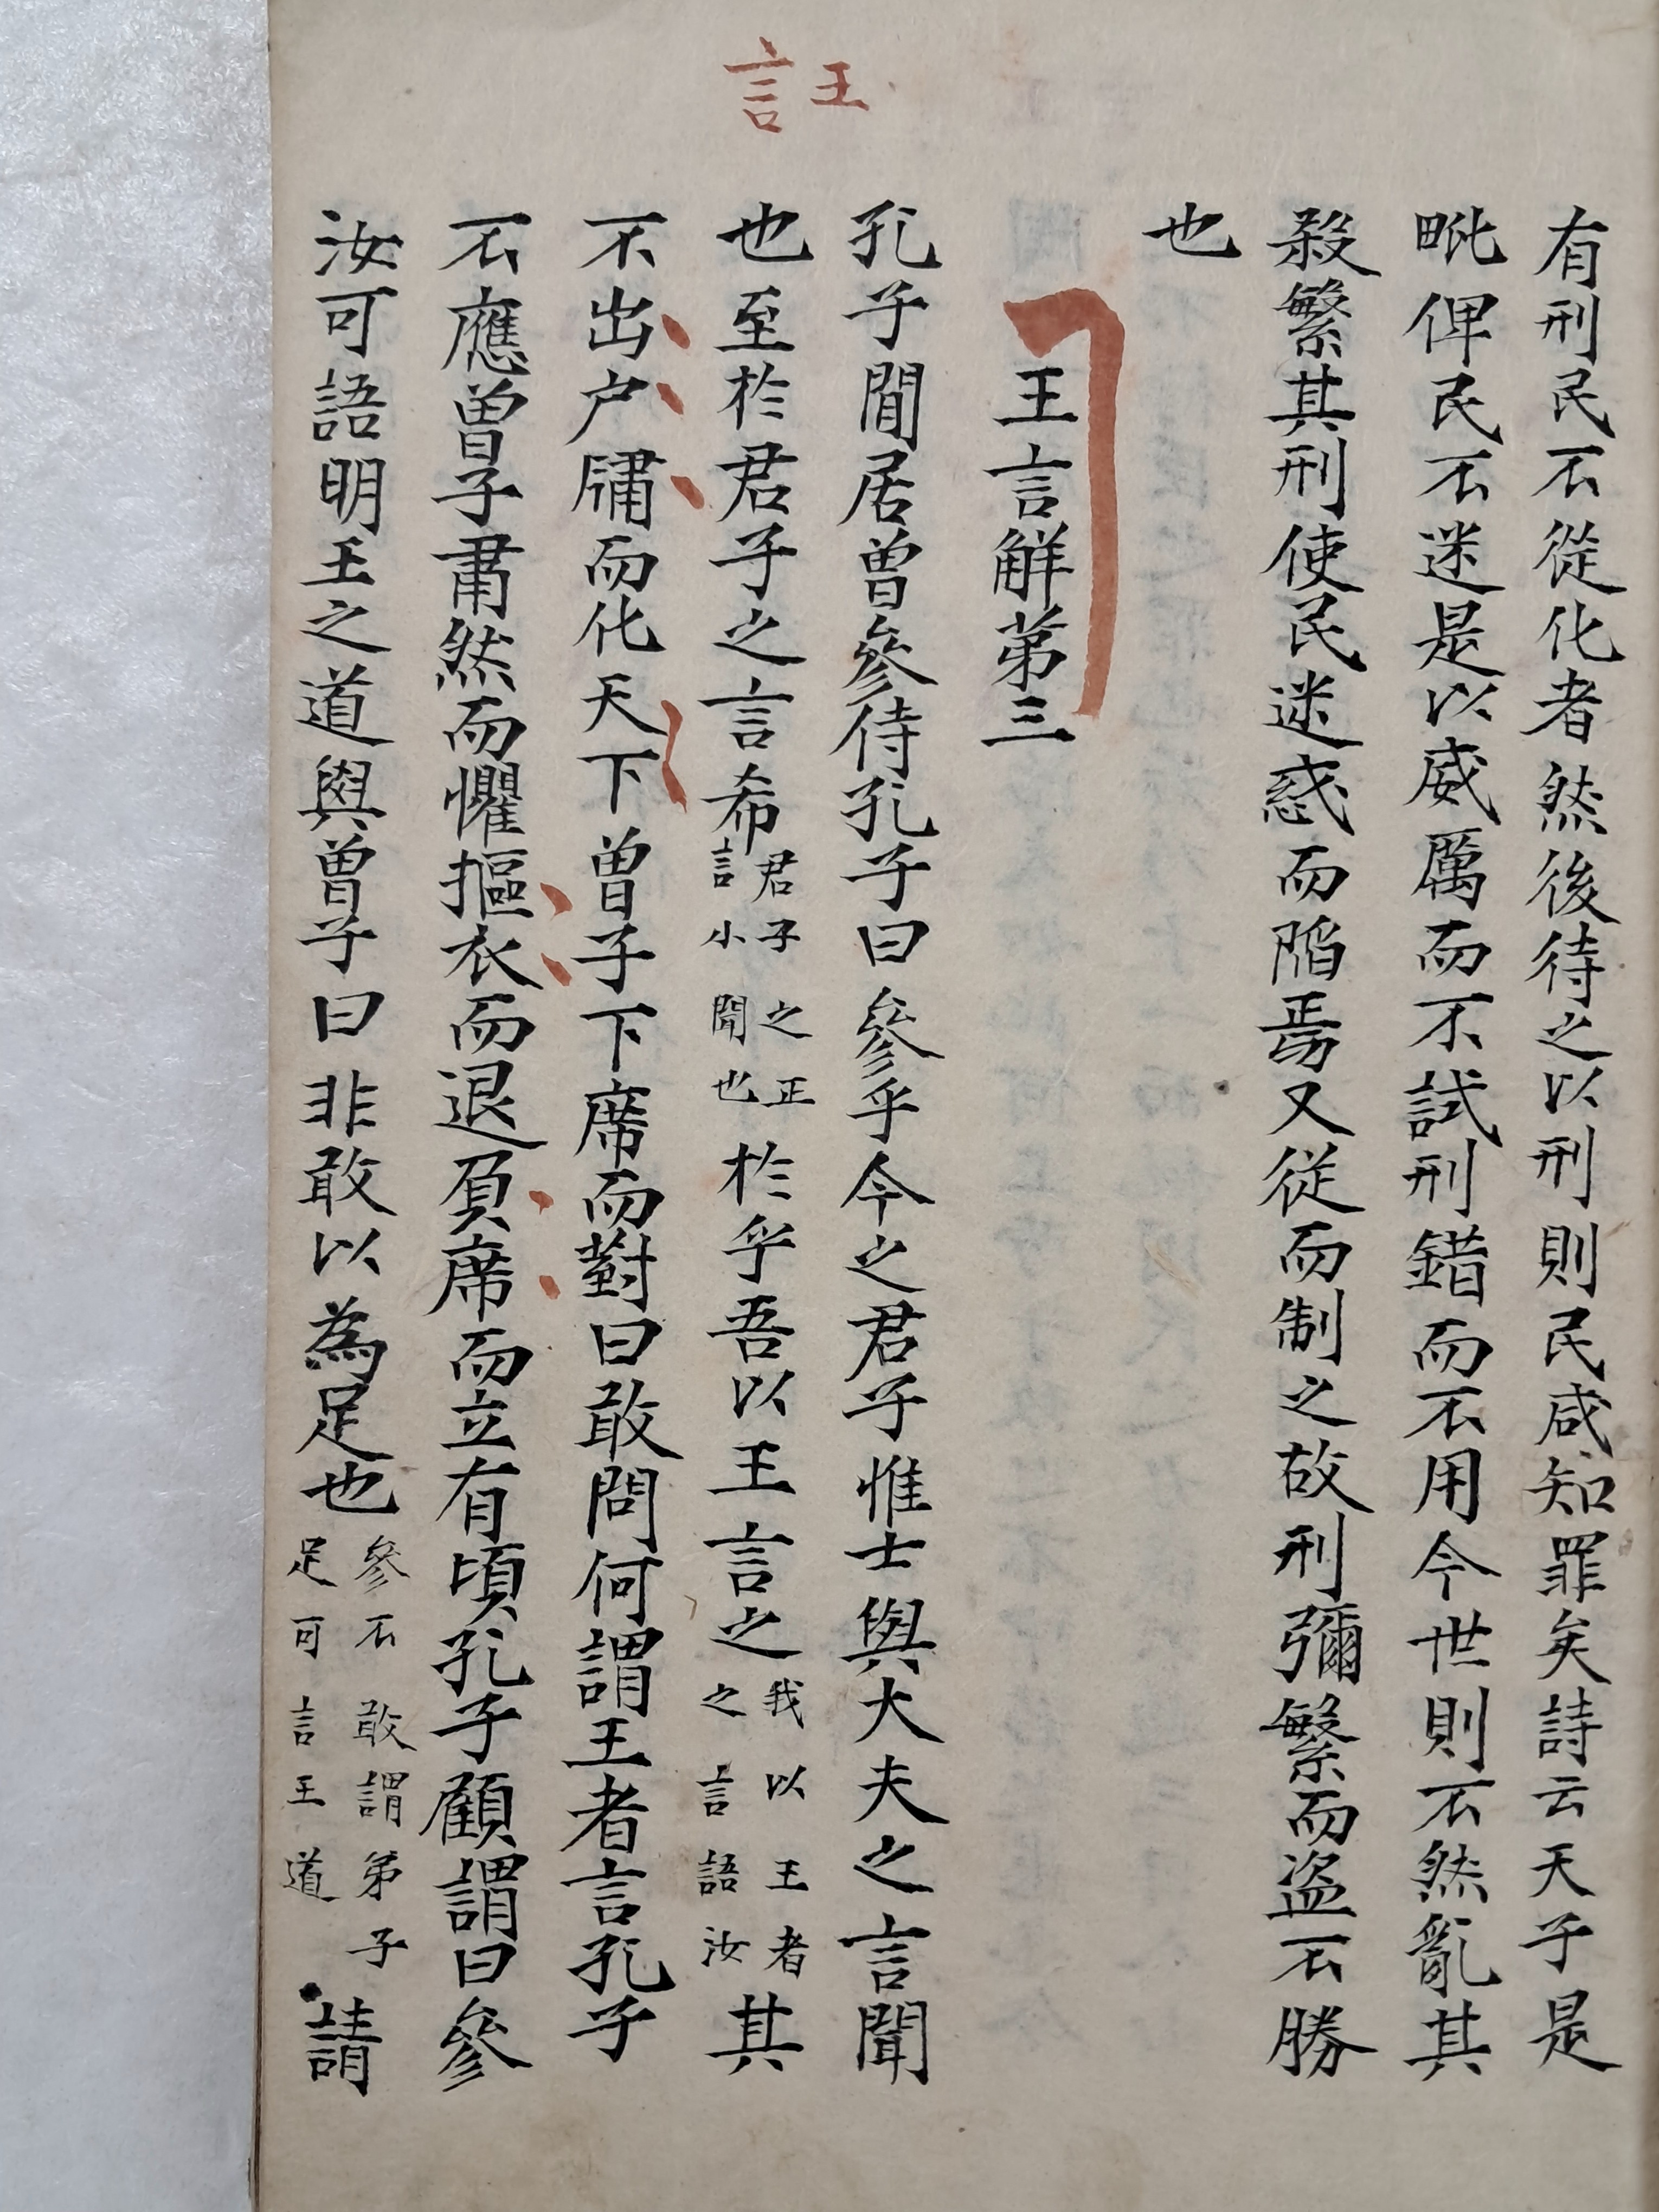 王言
有刑民不從化者然後待之以刑則民咸知罪矣詩云天子是
毗俾民不迷是以威厲而不試刑錯而不用今世則不然亂其
殺繁其刑使民迷惑而陷焉又從而制之故刑彌繁而盜不勝
也
王言解第三
孔子閒居曾參待孔子曰參乎今之君子惟士與大夫之言聞
也至於君子之言希君子之正言小聞也於乎吾以王言之我以王者之言語汝其
不出户牖而化天下曾子下席而對曰敢問何謂王者言孔子
不應曾子肅然而懼摳衣而退負席而立有頃孔子顧謂曰參
汝可語明王之道與曾子曰非敢以為足也參不敢謂弟子足可言王道請